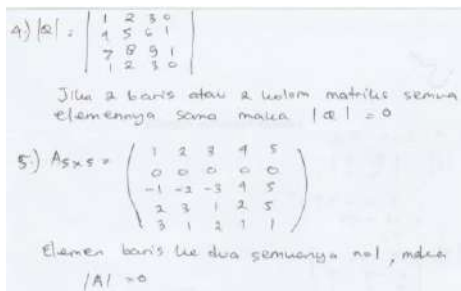 4.) |Q| = | 1 2 3 0 |
| 4 5 6 1 |
| 7 8 9 1 |
| 1 2 3 0 |
Jika 2 baris atau 2 kolom matriks semua
elemennya sama maka |Q| = 0
5.) A5x5 = ( 1 2 3 4 5 )
( 0 0 0 0 0 )
( -1 -2 -3 4 5 )
( 2 3 1 2 5 )
( 3 1 2 1 1 )
Elemen baris ke dua semuanya nol, maka
|A| = 0